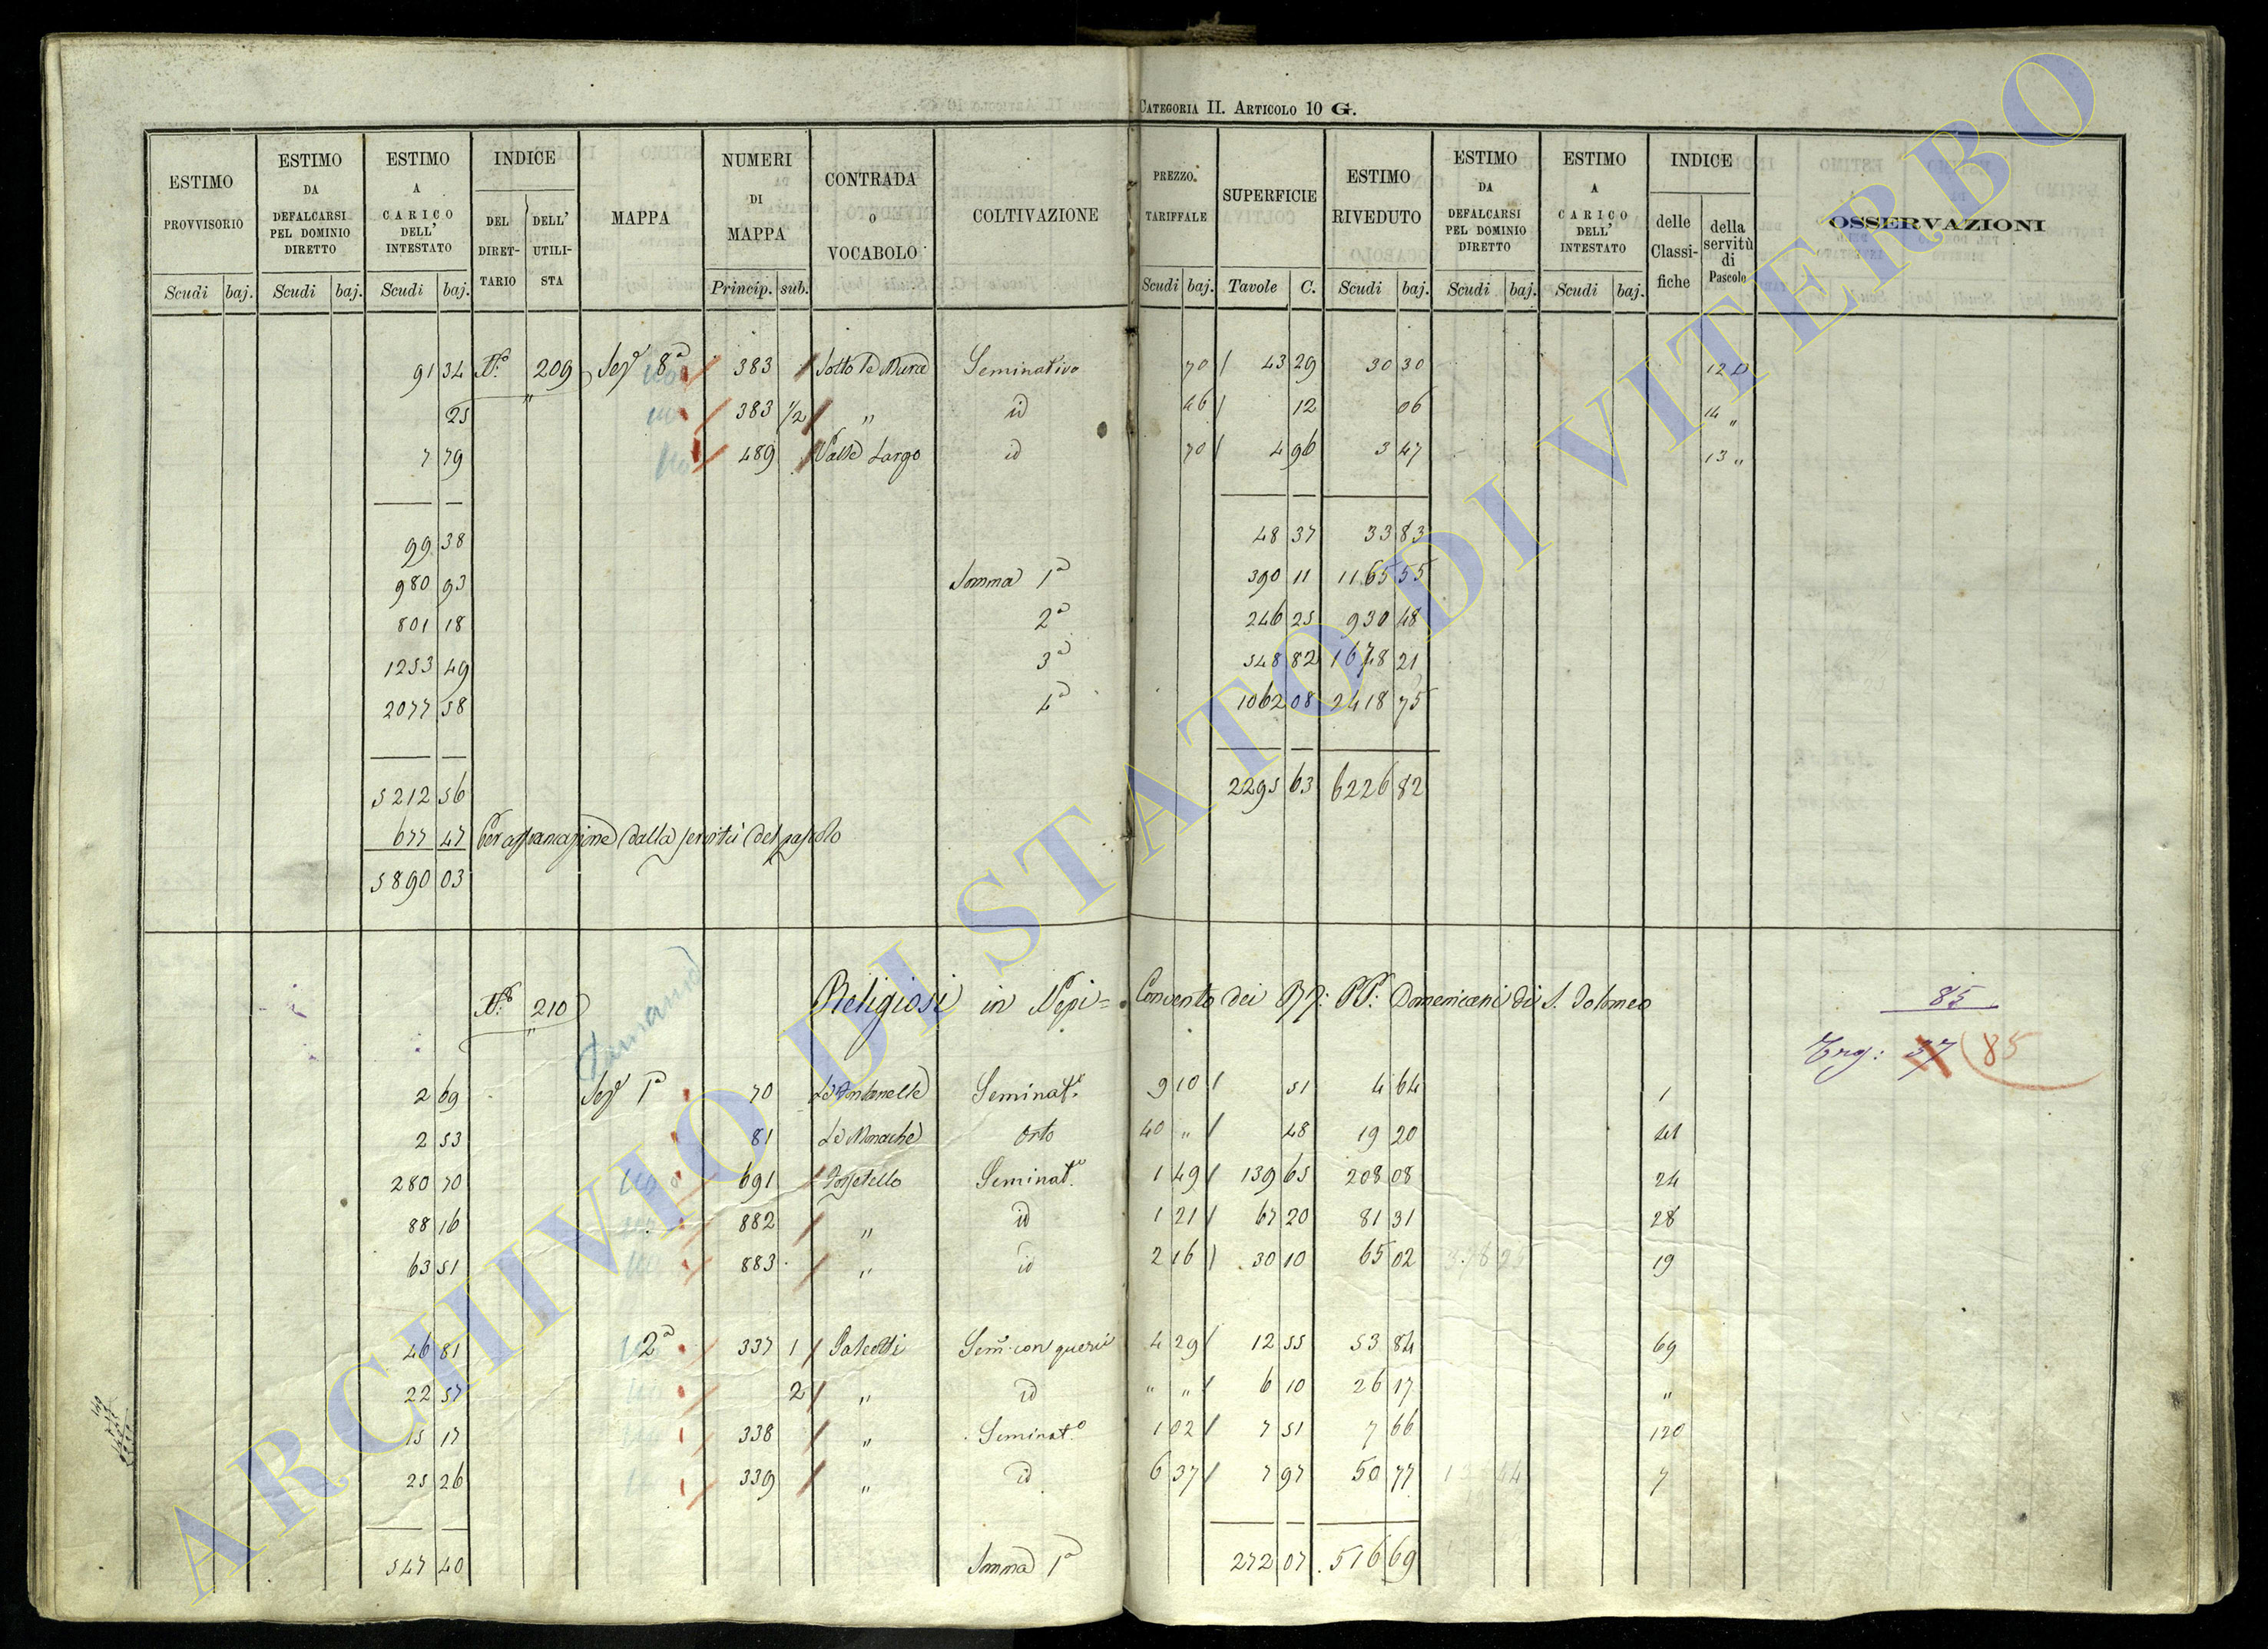 CATEGORIA II. ARTICOLO 10 G.
ESTIMO PROVVISORIO | ESTIMO DA DEFALCARSI PEL DOMINIO DIRETTO | ESTIMO A CARICO DELL' INTESTATO | INDICE | MAPPA | NUMERI DI MAPPA | CONTRADA O VOCABOLO | COLTIVAZIONE | PREZZO TARIFFALE | SUPERFICIE | ESTIMO RIVEDUTO | ESTIMO DA DEFALCARSI PEL DOMINIO DIRETTO | ESTIMO A CARICO DELL' INTESTATO | INDICE | OSSERVAZIONI
DEL DIRETTARIO | DELL' UTILISTA | delle Classifiche | della servitù di Pascolo
Scudi | baj. | Scudi | baj. | Scudi | baj. | Princip. | sub. | Scudi | baj. | Tavole | C. | Scudi | baj. | Scudi | baj. | Scudi | baj.
91 34 | N.° 209 | Sez.e 8a | 383 | Sotto le Mura | Seminativo | 70 | 43 29 | 30 30 | 12
25 | " | 383 1/2 | " | id | 46 | 12 | 06 | 14 "
7 79 | 489 | Valle Largo | id | 70 | 4 96 | 3 47 | 13 "
99 38 | 48 37 | 33 83
980 93 | Somma 1a | 390 11 | 1165 55
801 18 | 2a | 246 25 | 930 48
1253 49 | 3a | 548 82 | 1678 21
2077 58 | 4a | 1062 08 | 2418 75
5212 56 | 2295 63 | 6226 82
677 47 | Per affrancazione dalla servitù del pascolo
5890 03
N.° 210 | Religiosi in Nepi = Convento dei RR: PP: Domenicani di S. Tolomeo | 85
" | Trg: 37 85
2 69 | Sez.e 1a | 70 | Le Fontanelle | Seminat.o | 9 10 | 51 | 4 64 | 1
2 53 | 81 | Le Monache | Orto | 40 " | 48 | 19 20 | 41
280 70 | 691 | Pozzetello | Seminat.o | 1 49 | 139 65 | 208 08 | 24
88 16 | 882 | " | id | 1 21 | 67 20 | 81 31 | 28
63 51 | 883 | " | id | 2 16 | 30 10 | 65 02 | 19
46 81 | 2a | 337 1 | Galeotti | Sem. con querci | 4 29 | 12 55 | 53 84 | 69
22 57 | 2 | " | id | " " | 6 10 | 26 17 | "
15 17 | 338 | " | Seminat.o | 1 02 | 7 51 | 7 66 | 120
25 26 | 339 | " | id | 6 37 | 7 97 | 50 77 | 7
547 40 | Somma 1a | 272 07 | 516 69
ARCHIVIO DI STATO DI VITERBO